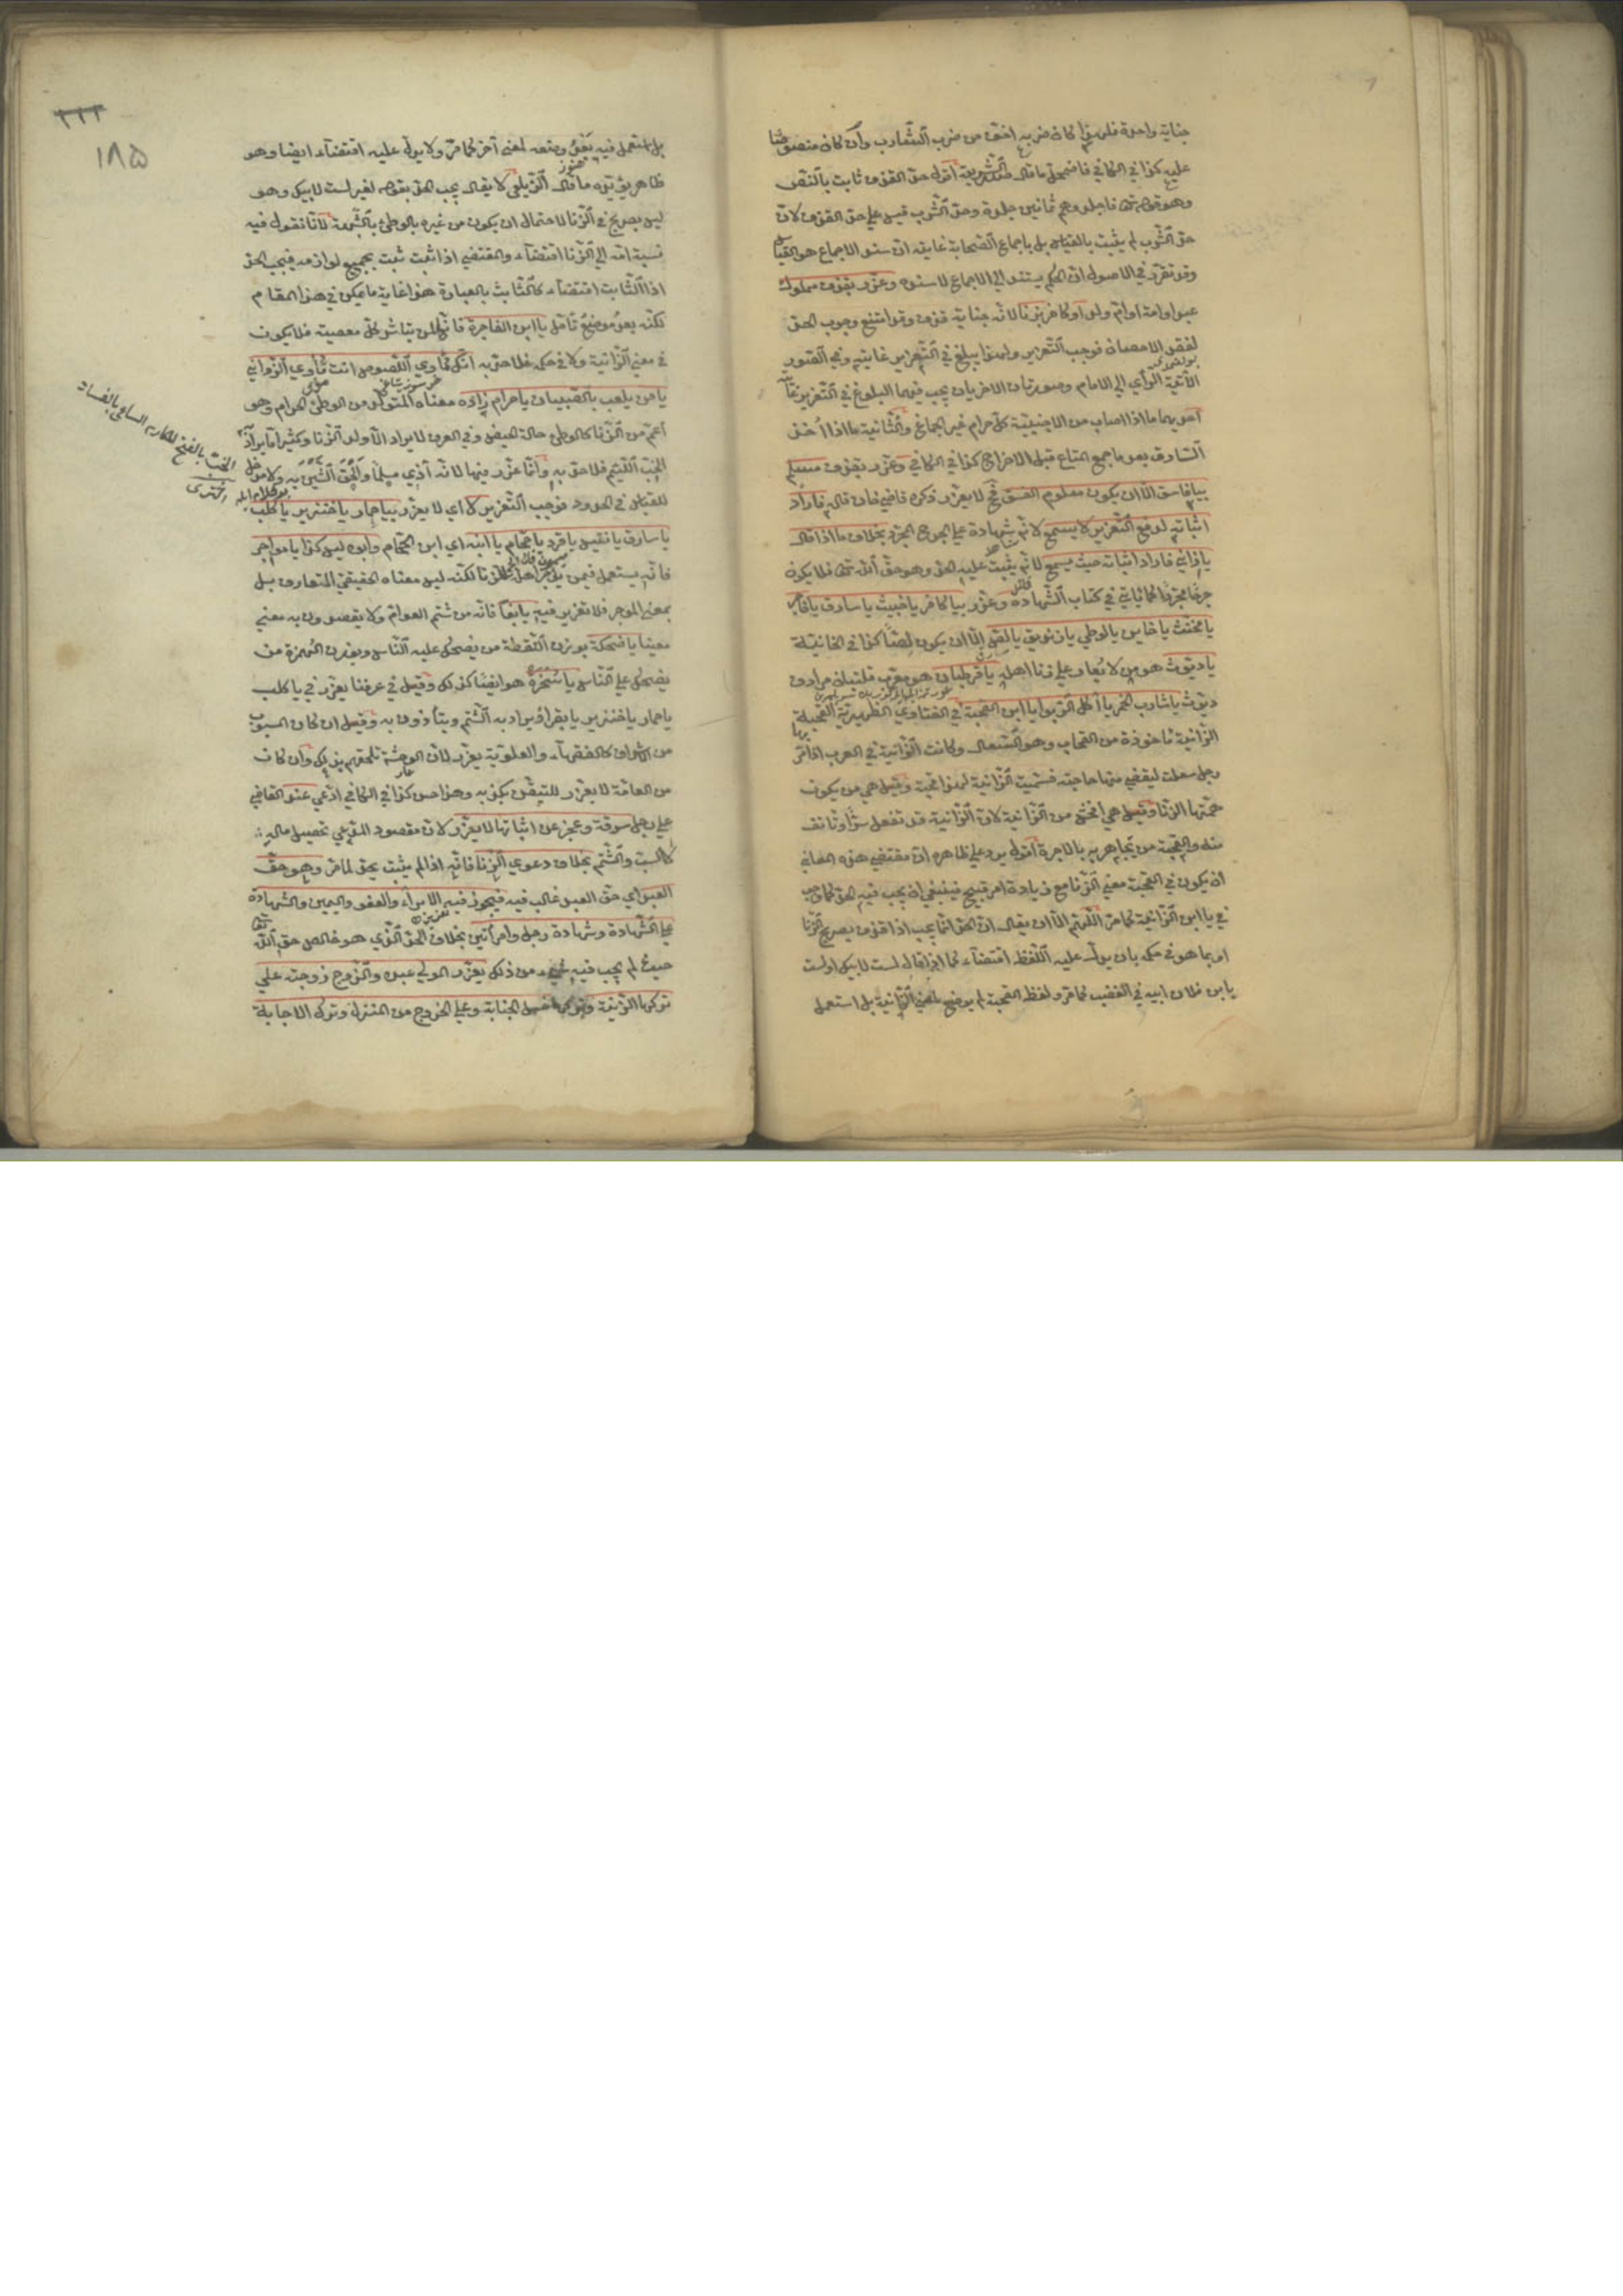 جناية واحدة فلهذا كان ضربه اخف من ضرب الشارب وان كان منصوصا
عليه كذا في الكافي فاضمحل ما قال صدر الشريعة اقول حد القذف ثابت بالنص
وهو قوله تعالى فاجلدوهم ثمانين جلدة وحد الشرب قيس على حد القذف لان
حد الشرب لم يثبت بالقياس بل باجماع الصحابة غايته ان سند الاجماع هو القياس
وقد تقرر في الاصول ان الحكم يستند الى الاجماع لا سنده وعزر بقذف مملوك
عبدا او امة او ام ولد او كافر بزنا لانه جناية قذف وقد امتنع وجوب الحد
لفقد الاحصان فوجب التعزير ولهذا يبلغ في التعزير غايته وفي الصور
الآتية الرأي الى الامام وصورتان الاخريان يجب فيهما البلوغ في التعزير غايته
احديهما ما اذا اصاب من الاجنبية كل حرام غير الجماع والثانية ما اذا اخذ
السارق بعد ما جمع المتاع قبل الاخراج كذا في الكافي وعزر بقذف مسلم
بيا فاسق الا ان يكون معلوم الفسق فح لا يعزر ذكره قاضي خان قاله فاراد
اثباته لدفع التعزير لا يسمع لانه شهادة على الجرح المجرد بخلاف ما اذا قال
يا زاني فاراد اثباته حيث يسمع لانه يثبت عليه الحد وهو حق الله تعالى فلا يكون
جرحا مجردا كما ياتي في كتاب الشهادة وعزر بيا كافر يا خبيث يا سارق يا فاجر
يا مخنث يا خاين يا لوطي يا زنديق يا لص الا ان يكون لصا كذا في الخانية
يا ديوث هو من لا يغار على زنا اهله يا قرطبان هو معرب قلتبان مرادف
ديوث يا شارب الخمر يا آكل الربوا يا ابن القحبة في الفتاوى الظهيرية القحبة
الزانية ماخوذة من القحاب وهو السعال وكانت الزانية في العرب اذا مر بها
رجل سعلت ليقضي منها حاجته فسميت الزانية لهذا قحبة وقيل هي من يكون
همتها الزنا وقيل هي افحش من الزانية لان الزانية قد تفعل سرا وتانف
منه والقحبة من تجاهر به بالاجرة اقول يرد على ظاهره ان مقتضى هذه المعاني
ان يكون في القحبة معنى الزنا مع زيادة امر قبيح فينبغي ان يجب فيه الحد كما وجب
في يا ابن الزانية كما مر اللهم الا ان يقال ان الحد انما يجب اذا قذف بصريح الزنا
او بما هو في حكمه بان يدل عليه اللفظ اقتضاء كما اذا قال لست لابيك او لست
يا بن فلان ابيه في الغضب كما مر ولفظ القحبة لم يوضع لمعنى الزانية بل استعمل
٢٢٢
١٨٥
بل استعمل فيه بعد وضعه لمعنى آخر كما مر ولا يدل عليه اقتضاء ايضا وهو
ظاهر يؤيده ما قال الزيلعي لا يقال يجب الحد بقوله لغير لست لابيك وهو
ليس بصريح في الزنا لاحتمال ان يكون من غيره بالوطئ بالشبهة لانا نقول فيه
نسبة امه الى الزنا اقتضاء والمقتضى اذا ثبت ثبت بجميع لوازمه فيجب الحد
اذ الثابت اقتضاء كالثابت بالعبارة هذا غاية ما يمكن في هذا المقام
لكنه بعد موضع تامل يا ابن الفاجرة فانها من يباشر كل معصية فلا يكون
في معنى الزانية ولا في حكمه فلا حد به انك مأوي اللصوص انت مأوي الزواني
يا من يلعب بالصبيان يا حرام زاده معناه المتولد من الوطئ الحرام وهو
اعم من الزنا كالوطئ حالة الحيض وفي العرف لا يراد الا ولد الزنا وكثيرا ما يراد به
الخب اللئيم فلا حد به وانما عزر فيها لانه آذى مسلما والحق الشين به ولا مدخل
للقياس في الحدود فوجب التعزير لا اي لا يعزر بيا حمار يا خنزير يا كلب
الخب بالفتح المكار الساعي بالفساد
يا سارق يا نفيس يا قرد يا حجام يا ابنه اي ابن الحجام وابوه ليس كذا يا مواجر
فانه يستعمل فيمن يؤجر اهله للزنا لكنه ليس معناه الحقيقي المتعارف بل
بمعنى الموجر فلا تعزير فيه يا بغا فانه من شتم العوام ولا يقصدون به معنى
معينا يا ضحكة بوزن النقطة من يضحك عليه الناس وبوزن الهمزة من
يضحك على الناس يا سخرة هو ايضا كذلك وقيل في عرفنا يعزر في يا كلب
يا حمار يا خنزير يا بقر اذ يراد به الشتم ويتأذون به وقيل ان كان المسبوب
من الاشراف كالفقهاء والعلوية يعزر لان الوحشة تلحقهم بذلك وان كان
من العامة لا يعزر للتيقن بكذبه وهذا حسن كذا في الكافي ادعى عند القاضي
على رجل سرقة وعجز عن اثباتها لا يعزر لان مقصود المدعي تحصيل ماله
كالسب والشتم بخلاف دعوى الزنا فانه اذا لم يثبت يحد لما مر وهو حق
العبد اي حق العبد غالب فيه فيجوز فيه الابراء والعفو واليمين والشهادة
على الشهادة وشهادة رجل وامرأتين بخلاف الحد الذي هو خالص حق الله تعالى
حيث لم يجب فيه شيء من ذلك يعزر المولى عبده والزوج زوجته على
تركها الزينة وتركها غسل الجنابة وعلى الخروج من المنزل وترك الاجابة